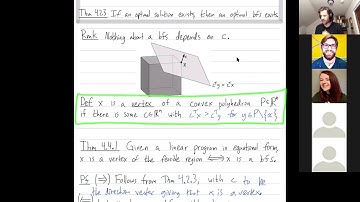 Thm 4.2.3 If an optimal solution exists, then an optimal bfs exists.
Rmk Nothing about a bfs depends on c.
x
cᵀy = cᵀx
Def x is a vertex of a convex polyhedron P⊆ℝⁿ
if there is some c∈ℝⁿ with cᵀx > cᵀy for y∈P\{x}
Thm 4.4.1 Given a linear program in equational form,
x is a vertex of the feasible region ⟺ x is a bfs.
Pf (⇒) Follows from Thm 4.2.3, with c to be
the direction vector giving that x is a vertex